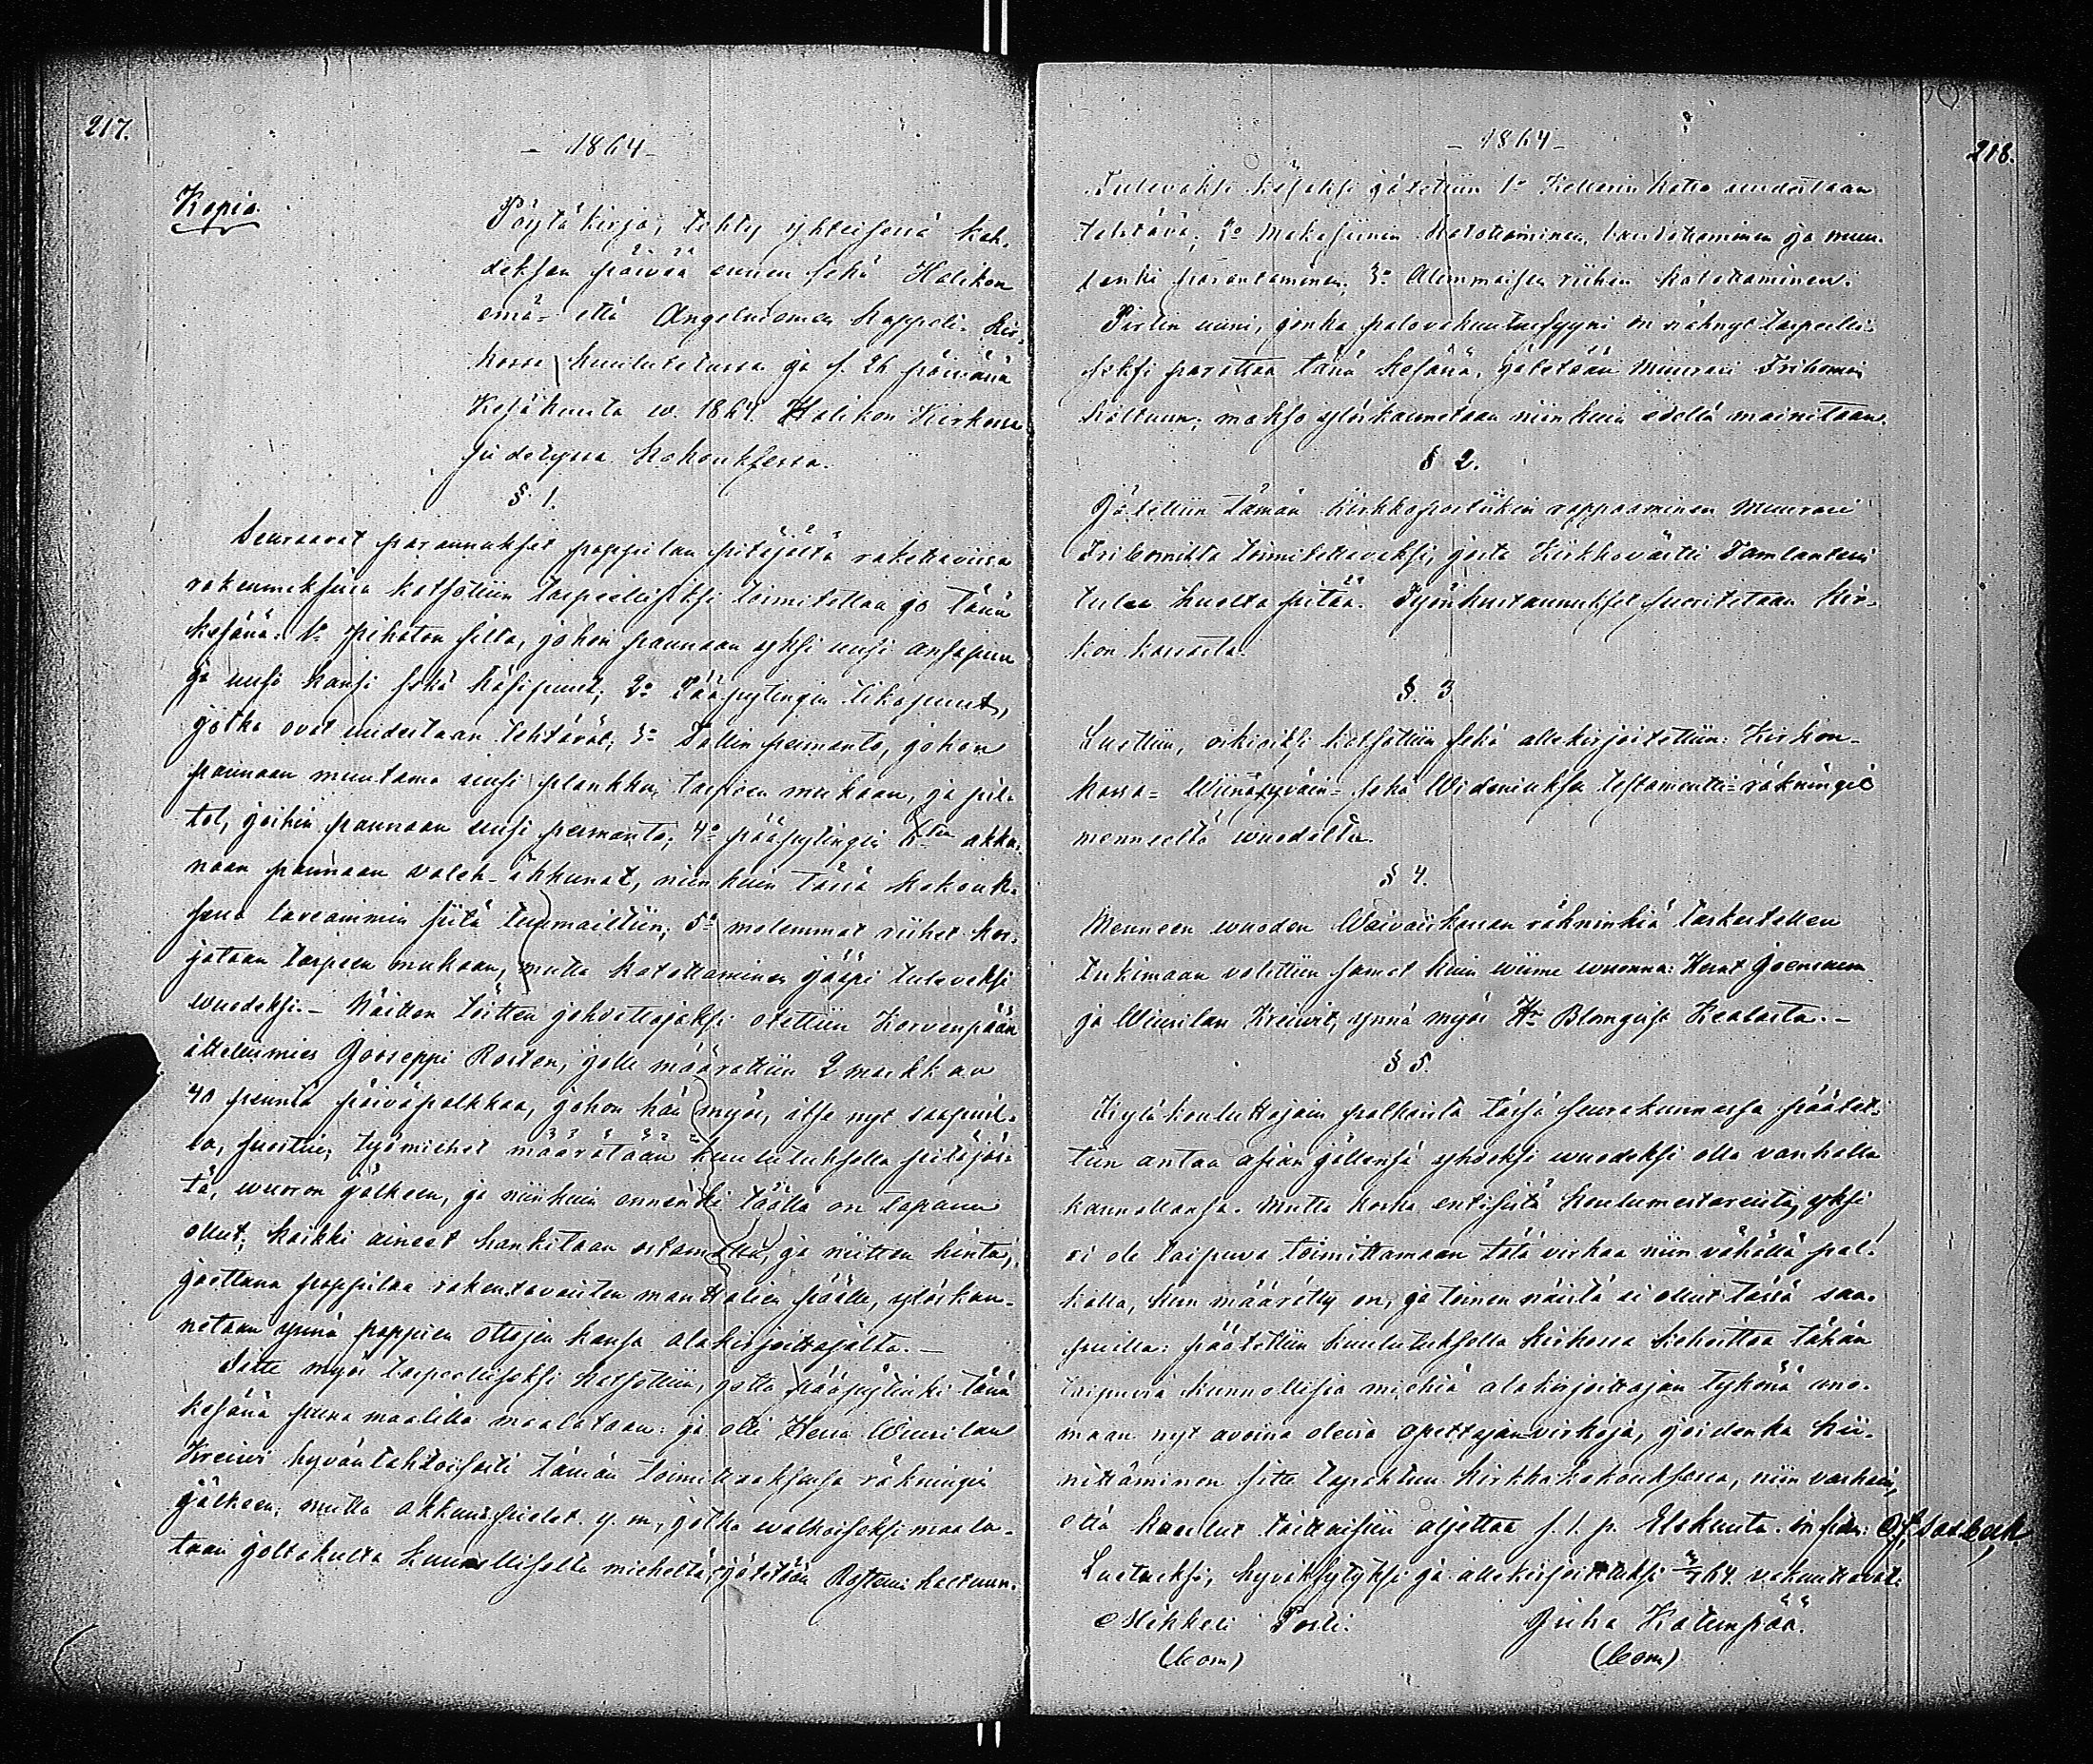 217.
- 1864 -
Kopia
Pöytäkirja, tehty yhteisessä kah-
deksan päivää ennen sekä Halikon
emä- että Angelniemen kappeli- kir-
kossa kuulutetussa ja s. 26 päivänä
Kesäkuuta w. 1864 Halikon Kirkossa
pidetyssä kokouksessa.
§ 1.
Seuraavat parannukset pappilan pitäjältä rakettavissa
rakennuksissa katsottiin tarpeellisiksi toimitettaa jo tänä
kesänä: 1o Pihaton silta, johon pannaan yksi uusi ansapuu
ja uusi kansi sekä käsipuut; 2o Pääpytingin tikapuut,
jotka ovat uudestaan tehtävät; 3o Tallin permanto, johon
pannaan muutama uusi plankku, tarpeen mukaan, ja pil-
tol, joihin pannaan uusi permanto; 4o pääpytingin akku-
naan pannaan valeh-akkunat, niinkuin tässä kokouk-
sessa laveammin siitä tuumailtiin; 5o molemmat riihet kor-
jataan tarpeen mukaan, mutta katottaminen jääpi tulevaksi
wuodeksi. - Näitten töitten johdattajaksi otettiin Korvenpään
itsellismies Jooseppi Rosten, jolle määrättiin 2 markkaa
40 penniä päiväpalkkaa, johon hän myös, itse nyt saapuvil-
la, suostui; työmiehet määrätään kuulutuksella pitäjäs-
tä, wuoron jälkeen, ja niinkuin ennenki täällä on tapana
ollut; kaikki aineet hankitaan ostamalla, ja niitten hinta,
joettuna pappilaa rakentavaisten manttalien päälle, ylöskan-
netaan ynnä pappien ottojen kansa alakirjoittajalta. -
Sitte myös tarpeelliseksi katsottiin, jotta pääpytinki tänä
kesänä puna maalilla maalataan: ja otti Herra Wiurilan
Kreivi hyväntahtoisesti tämän toimittaaksensa räkningin
jälkeen; mutta akkunapielet y. m., jotka walkoiseksi maala-
taan joltakulta kunnolliselta mieheltä, jätetään Rostenin haltuun.
- 1864 -
218.
Tulevaksi kesäksi jätettiin 1o Kellarin katto uudestaan
tehtävä; 2o Makasiinin katottaminen, laudottaminen ja muu-
tenki parantaminen; 3o Alimmaisen riihen katottaminen.
Pirtin uuni, jonka palovakuutussyyni on nähnyt tarpeelli-
seksi parattaa tänä kesänä, jätetään Muurari Fribomin
haltuun; makso ylöskannetaan niinkuin edellä mainitaan.
§ 2.
Jätettiin tämän kirkkoportiikin rappaaminen Muurari
Fribomilta toimitettavaksi, josta Kirkkoväärtti Tamlanteri
tulee huolta pitää. Työnkustannukset suoritetaan kir-
kon kassasta.
§. 3
Luettiin, oikiaksi katsottiin sekä allekirjoitettiin: Kirkon-
kassa- Wiinajyväin- sekä Wideniuksen testamentti-räkningit
menneeltä wuodelta.
§ 4.
Menneen wuoden Waivaiskassan räkninkiä tarkastellen
tutkimaan valittiin samat kuin wiime wuonna: Herrat Joensuun
ja Wiurilan Kreivit, ynnä myös Hr Blomqvist Kealasta. -
§ 5.
Kyläkouluttajain palkoista tässä seurakunnassa päätet-
tiin antaa asian jällensä yhdeksi wuodeksi olla vanhalla
kannallansa. Mutta koska entisistä koulumestareista, yksi
ei ole taipuva toimittamaan tätä virkaa niin vähällä pal-
kalla, kun määrätty on, ja toinen näistä ei ollut tässä saa-
puilla: päätettiin kuulutuksella kirkossa kehoittaa tähän
taipuvia kunnollisia miehiä alakirjoittajan tykönä ano-
maan nyt avoina olevia opettajan virkoja, joidenka kii-
nittäminen sitte tapahtuu kirkkokokouksessa, niin varhain,
että koulut taittaisiin aljettaa s. 1. p. Elokuuta.
Luetuksi, hyväksytyksi ja allekirjoitetuksi 64 vakuuttavat:
Mikkeli Posti. Juha Katumpää.
(bom) (bom)